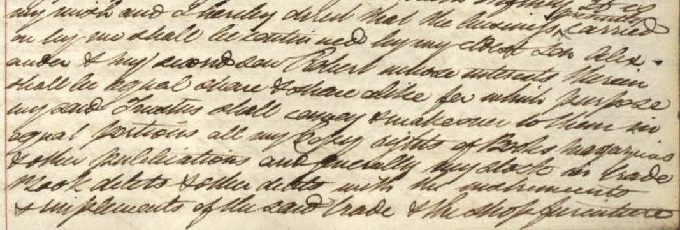 my wish and I hereby direct that the business carried
on by me shall be continued by my eldest Son Alex-
ander & my second son Robert whose interests therein
shall be equal share & share alike for which purpose
my said Trustees shall convey & make over to them in
equal portions all my Copy rights of Books Magazines
& other publications and generally my stock in trade
Book debts & other debts with the instruments
& implements of the said trade & the shop furniture